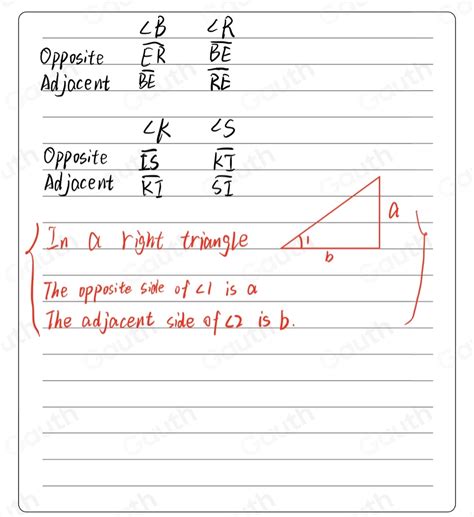 ∠B ∠R
Opposite ER BE
Adjacent BE RE
∠K ∠S
Opposite IS KI
Adjacent KI SI
In a right triangle
1
a
b
The opposite side of ∠1 is a
The adjacent side of ∠2 is b.
Gauth